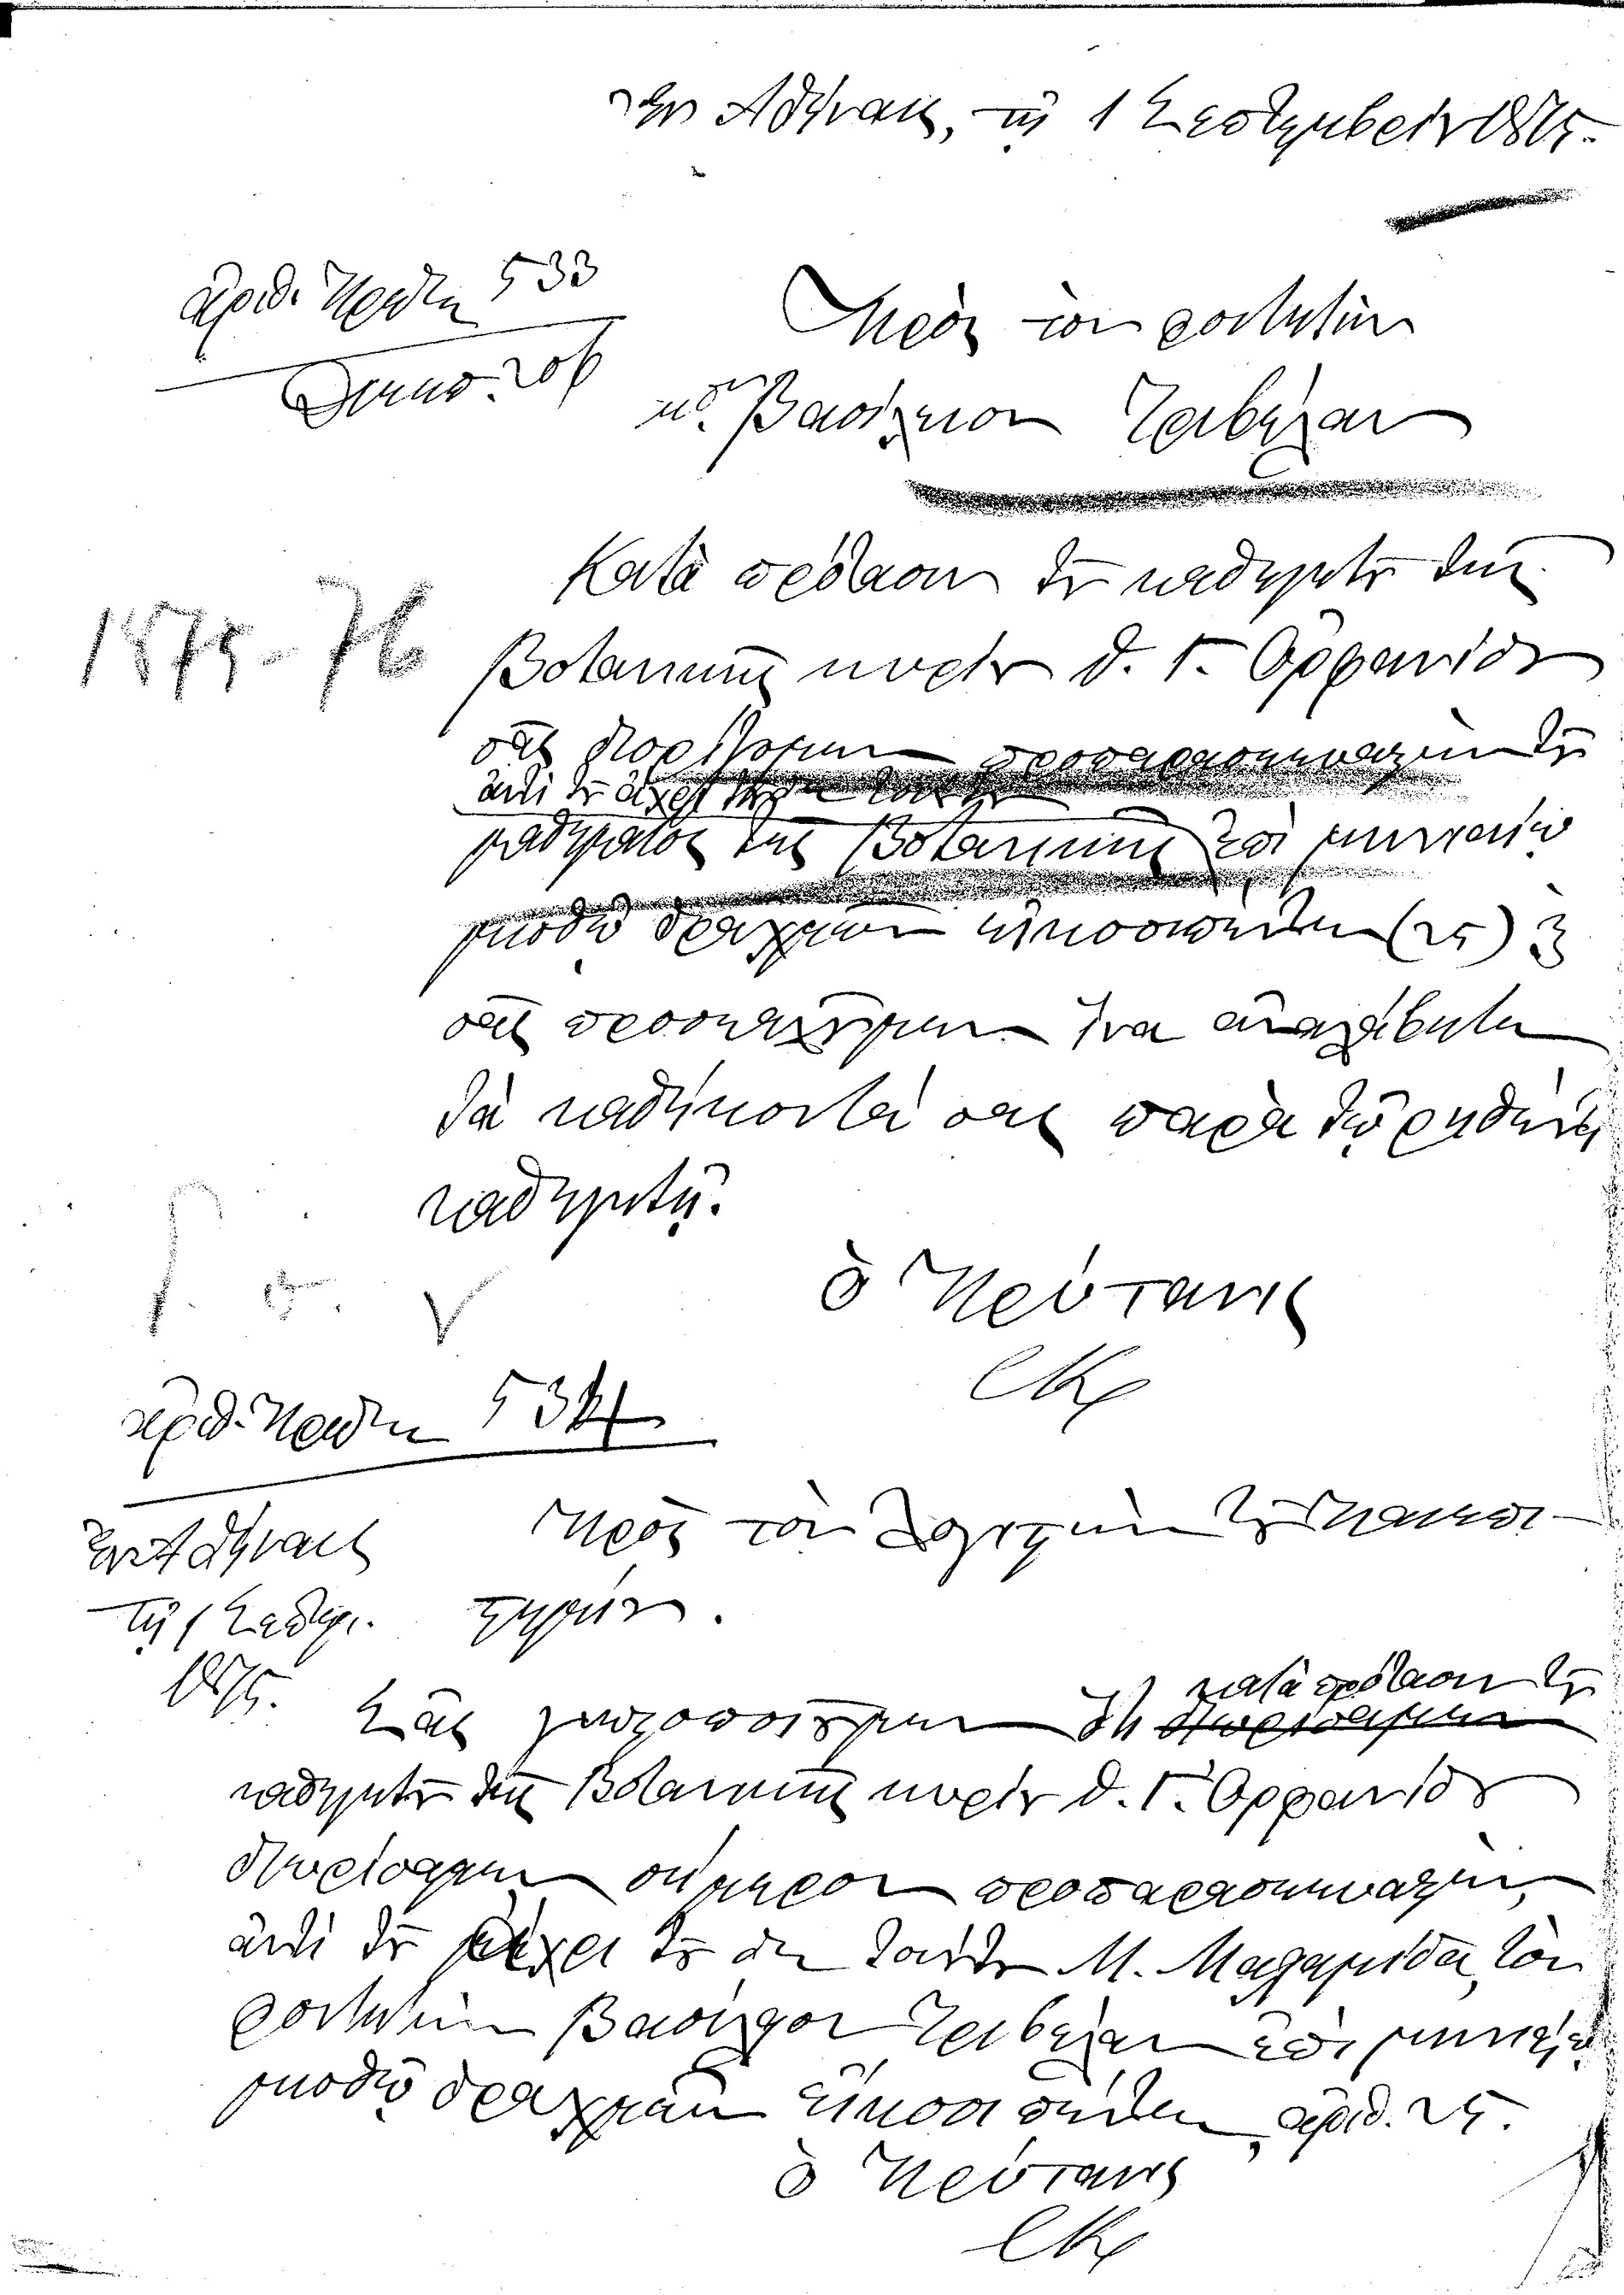 Ἐν Ἀθήναις, τῇ 1 Σεπτεμβρίου 1875.
ἀριθ. Πρωτ. 533
Διεκπ. 206
Πρὸς τὸν φοιτητὴν
κον. Βασίλειον Τριβέλαν
Κατὰ πρότασιν τοῦ καθηγητοῦ τῆς
1875-76
Βοτανικῆς κυρίου Θ. Γ. Ὀρφανίδου
σᾶς διορίζομεν προπαρασκευαστὴν τοῦ
ἀντὶ τοῦ ἄχρι τοῦδε
μαθήματος τῆς Βοτανικῆς ἐπὶ μηνιαίῳ
μισθῷ δραχμῶν εἰκοσιπέντε (25) καὶ
σᾶς προσκαλοῦμεν ἵνα ἀναλάβητε
τὰ καθήκοντά σας παρὰ τῷ ρηθέντι
καθηγητῇ.
ὁ Πρύτανις
ἀριθ. Πρωτ. 534
Πρὸς τὸν Λογιστὴν τοῦ Πανεπι-
στημίου.
Ἐν Ἀθήναις
τῇ 1 Σεπτεμ.
1875.
κατὰ πρότασιν τοῦ
Σᾶς γνωστοποιοῦμεν ὅτι διωρίσαμεν
καθηγητοῦ τῆς Βοτανικῆς κυρίου Θ. Γ. Ὀρφανίδου
διωρίσαμεν σήμερον προπαρασκευαστὴν,
ἀντὶ τοῦ μέχρι τοῦδε τοιούτου Μ. Μαλαμίδα, τὸν
φοιτητὴν Βασίλειον Τριβέλαν ἐπὶ μηνιαίῳ
μισθῷ δραχμῶν εἴκοσι πέντε, ἀριθ. 25.
ὁ Πρύτανις